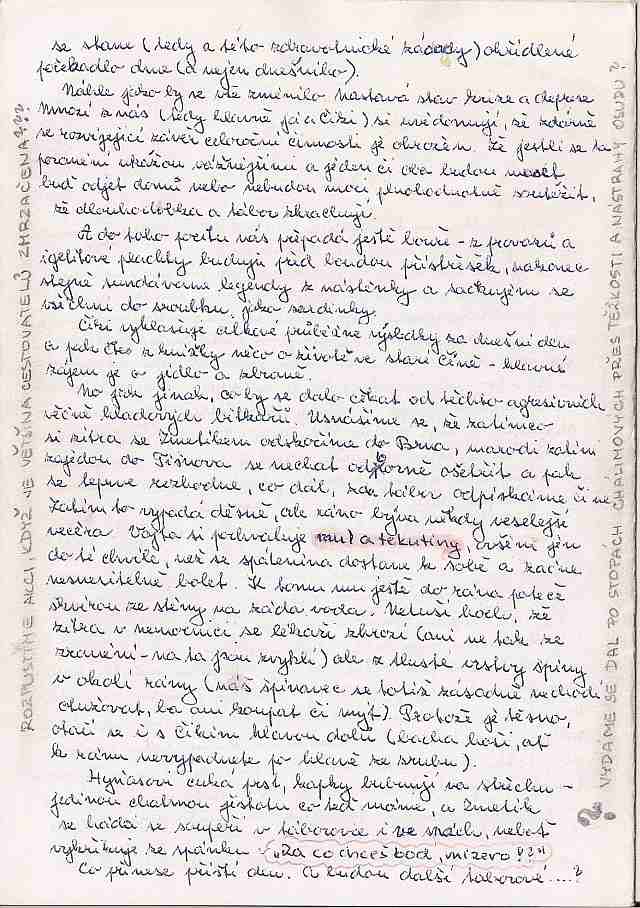 se stane (tedy a této zdravotnické zásady) okřídlené
pořekadlo dne (a nejen dnešního).
Náhle jako by se vše změnilo nastává stav krize a deprese
Mnozí z nás (tedy hlavně já a Čiki) si uvědomují, že zdárně
se rozvíjející závěr celoroční činnosti je ohrožen. Že jestli se ta
poranění ukážou vážnějšími a jeden či oba budou muset
buď odjet domů nebo nebudou moci plnohodnotně soutěžit,
že dlouhodobka a tábor zkrachují.
A do toho pocitu nás přepadá ještě bouře - z provazů a
igelitové plachty budují před boudou přístřešek, nakonec
stejně sundáváme legendy z nástěnky a sačkujem se
všichni do sroubku jako sardinky.
Čiki vyhlašuje celkové průběžné výsledky za dnešní den
a pak čtes z knížky něco o životě ve staré Číně - hlavně
zájem je o jídlo a zbraně.
No jak jinak, co by se dalo čekat od těchto agresivních
věčně hladových bitkařů. Usnášíme se, že zatímco
si zítra se Zmetikem odskočíme do Brna, marodi zatím
zajedou do Tišnova se nechat odborně ošetřit a pak
se teprve rozhodne, co dál, zda tábor odpískáme či ne
Zatím to vypadá děsně, ale ráno bývá někdy veselejší
večera. Vojta si pochvaluje a tekutiny, ovšem jen
do té chvíle, než se spálenina dostane k sobě a začne
nesnesitelně bolet. K tomu mu ještě do rána poteče
skvírou ze stěny na záda voda. Netuší hoch, že
zítra v nemocnici se lékaři zhrozí (ani ne tak ze
zranění - na ta jsou zvyklí) ale z tlusté vrstvy špíny
v okolí rány (náš špinavec se totiž zásadně nechodí
otužovat, ba ani koupat či mýt). Protože je těsno,
otáčí se i s Čikim hlavou dolů (bacha hoši, ať
k ránu nevypadnete po hlavě ze srubu).
Hyňasovi cuká prst, kapky bubnují na střechu -
jedinou chabnou jistotu co teď máme, a Zmetik
se hádá se soupeři v táborovce i ve snách, neboť
vykřikuje ze spánku "Za co chceš bod, mizero !?"
Co přinese příští den. A budou další táborové ....?
ROZPUSTÍME AKCI, KDYŽ JE VĚTŠINA CESTOVATELŮ ZMRZAČENA???
? VYDÁME SE DÁL PO STOPÁCH CHALIMOVÝCH PŘES TĚŽKOSTI A NÁSTRAHY OSUDU ?